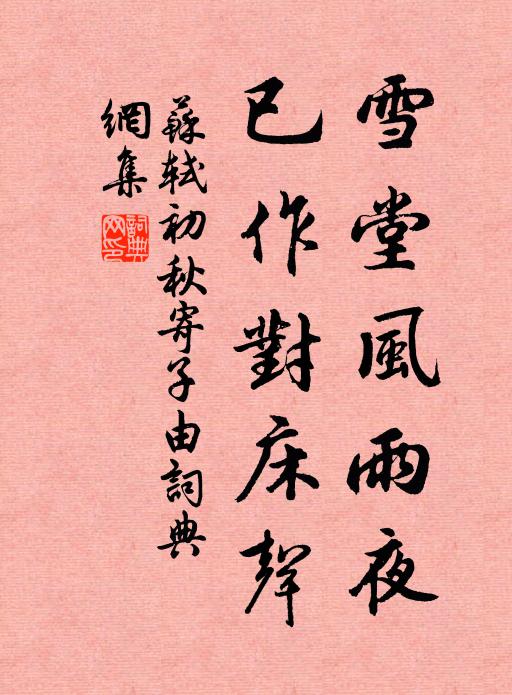 雪堂風雨夜
已作對床聲
蘇軾初秋寄子由詞典
網集
詞典網印